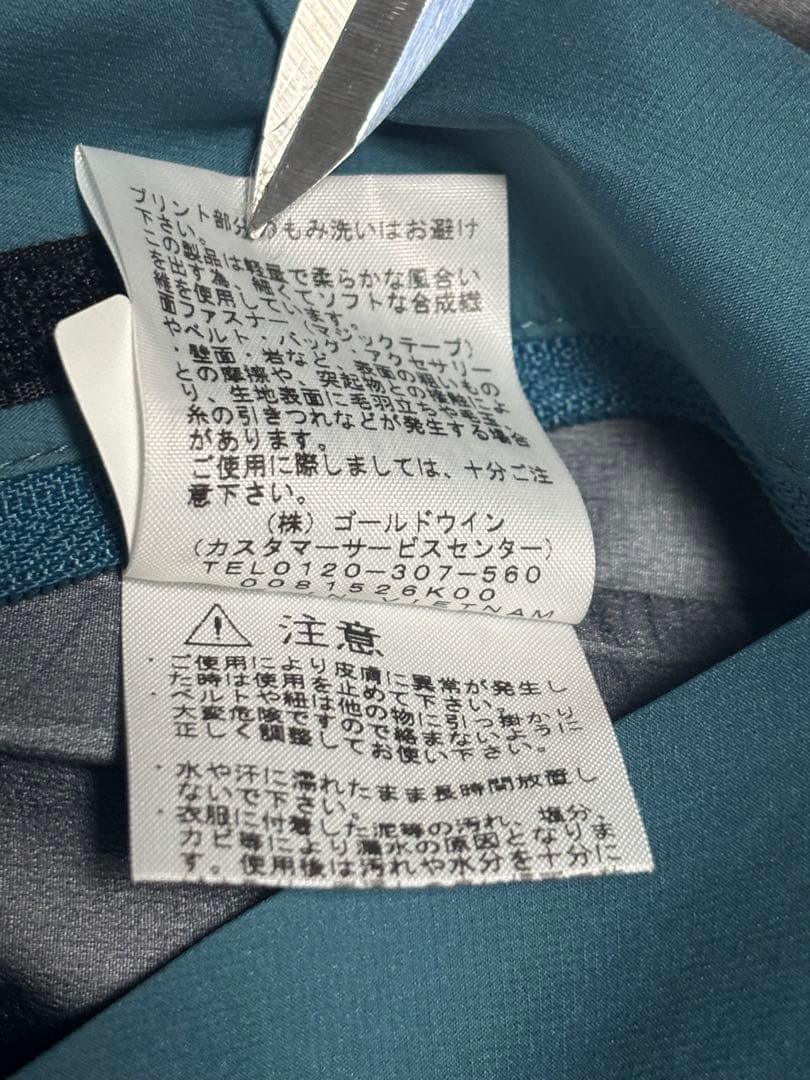 プリント部分のもみ洗いはお避け
下さい。
この製品は軽量で柔らかな風合い
を出す為、細くてソフトな合成繊
維を使用しています。
面ファスナー(マジックテープ)
やベルト・バッグ・アクセサリー
・壁面・岩など、表面の粗いもの
との摩擦や、突起物との接触によ
り、生地表面に毛羽立ちや毛玉、
糸の引きつれなどが発生する場合
があります。
ご使用に際しましては、十分ご注
意下さい。
(株) ゴールドウイン
(カスタマーサービスセンター)
TEL0120-307-560
0081526K00
IN VIETNAM
注意
・ご使用により皮膚に異常が発生し
た時は使用を止めて下さい。
・ベルトや紐は他の物に引っ掛かり
大変危険ですので絡まないように
正しく調整してお使い下さい。
・水や汗に濡れたまま長時間放置し
ないで下さい。
・衣服に付着した泥等の汚れ、塩分、
カビ等により漏水の原因となりま
す。使用後は汚れや水分を十分に